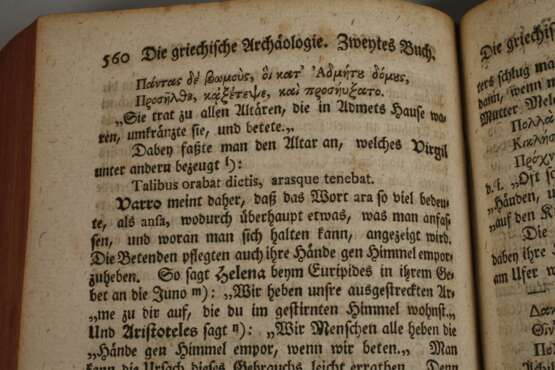 560 Die griechische Archäologie. Zweytes Buch.
Πάντας δὲ βωμοὺς, οἱ κατ' Ἀδμήτου δόμους,
Προσῆλθε, κἀξέτεψε, καὶ προσηύξατο.
„Sie trat zu allen Altären, die in Admets Hause wa-
ren, umkränzte sie, und betete.„
Dabey faßte man den Altar an, welches Virgil
unter andern bezeugt l):
Talibus orabat dictis, arasque tenebat.
Varro meint daher, daß das Wort ara so viel bedeu-
te, als ansa, wodurch überhaupt etwas, was man anfas-
sen, und woran man sich halten kann, angezeigt wird.
Die Betenden pflegten auch ihre Hände gen Himmel empor-
zuheben. So sagt Helena beym Euripides in ihrem Ge-
bet an die Juno m): „Wir heben unsre ausgestreckten Ar-
„me zu dir auf, die du im gestirnten Himmel wohnst.„
Und Aristoteles sagt n): „Wir Menschen alle heben die
„Hände gen Himmel empor, wenn wir beten.„ Man
kann die Ursach dieses Gebrauchs leicht errathen. Denn
Die griechis
ters schlug ma
dann, wenn m
Mutter Mel
Πολλὰ
Κικλήσ
Πρόχν
d. i. „Oft s
„Händen, und
„auf den K
Die
dabey ihre
am Ufer w